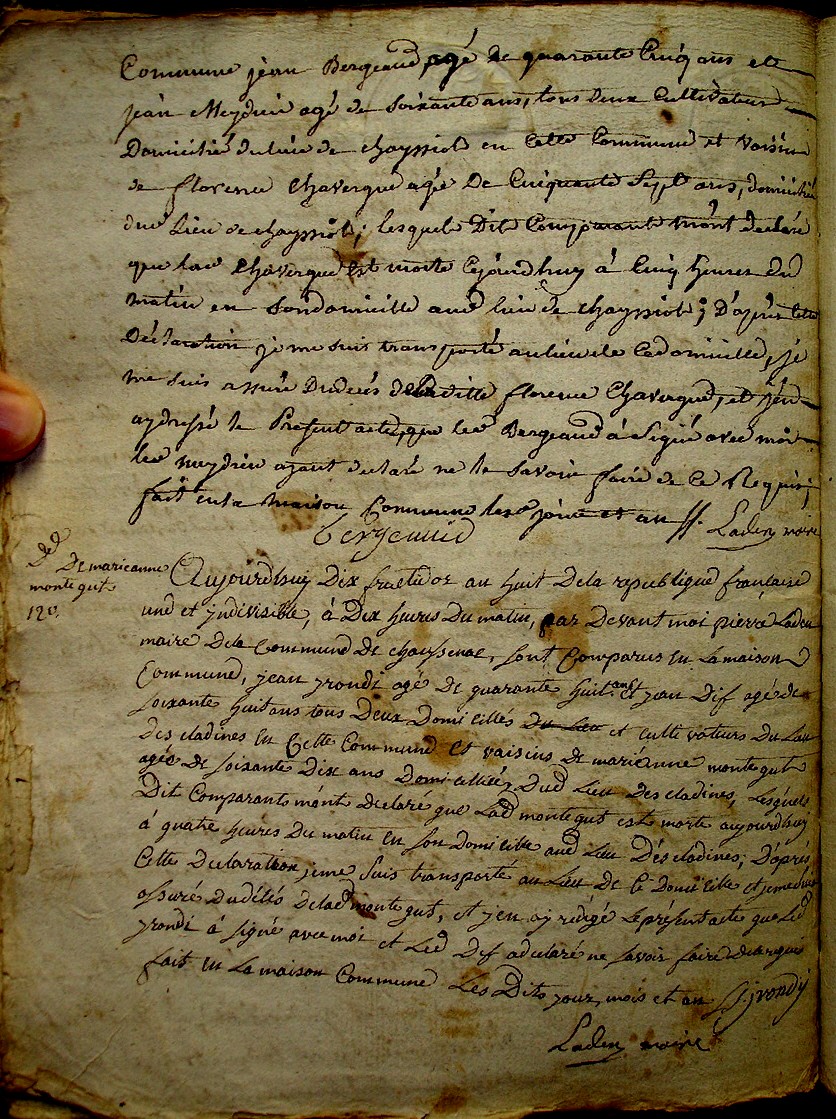 Commune jean Bergeaud agé de quarante Cinq ans et
jean Meydieu agé de soixante ans, tous deux Cultivateur
Domicilié du lieu de chayssiol en Cette Commune et voisin
de florence Chavergue agée De Cinquante Sept ans, domicilié
dud lieu de chayssiol; lesquels Dit Comparant m'ont declaré
que lad Chavergue est morte aujourdhuy à Cinq heures du
matin en son domicille aud lieu de chayssiol; D'après cette
Déclaration je me suis transporté au lieu de ce domicille, je
me suis assuré Du décés de laditte florence Chavergue, et j'en
ay dressé le Present acte, que led Bergeaud à Signé avec moi
led meydieu ayant declaré ne le savoir faire de ce Requis;
fait en la maison Commune les jour et an
Bergeaud Laden maire
Ded De marieanne
montegut
120
Aujourdhuy Dix fructidor an huit de la republique française
une et jndivisible, à Dix heures Du matin, par Devant moi pierre Laden
maire de la Commune De chaussenac, sont Comparus en La maison
Commune, jean jrondi agé De quarante huit ans et jean Dif agé de
soixante huit ans tous Deux Domicilliés du Lieu et cultivateurs Du Lieu
Des cladines en Cette Commune et vaisins De marieanne montegut
agée De soixante Dix ans Domicilliée Dud Lieu Des cladines, Lesquels
Dit Comparants m'ont declaré que Lad montegut est morte aujourdhuy
à quatre heures Du matin en son Domicille aud Lieu Des cladines; D'aprés
Cette declaration je me suis transporté au Lieu De ce Domicille et je me suis
assuré Du délés de lad montegut, et j'en ay redigé Le présent acte que Led
jrondi à signé avec moi et Led Dif a declaré ne savoir faire de ce requis
fait en La maison Commune Les Dits jour, mois et an jrondy
Laden maire